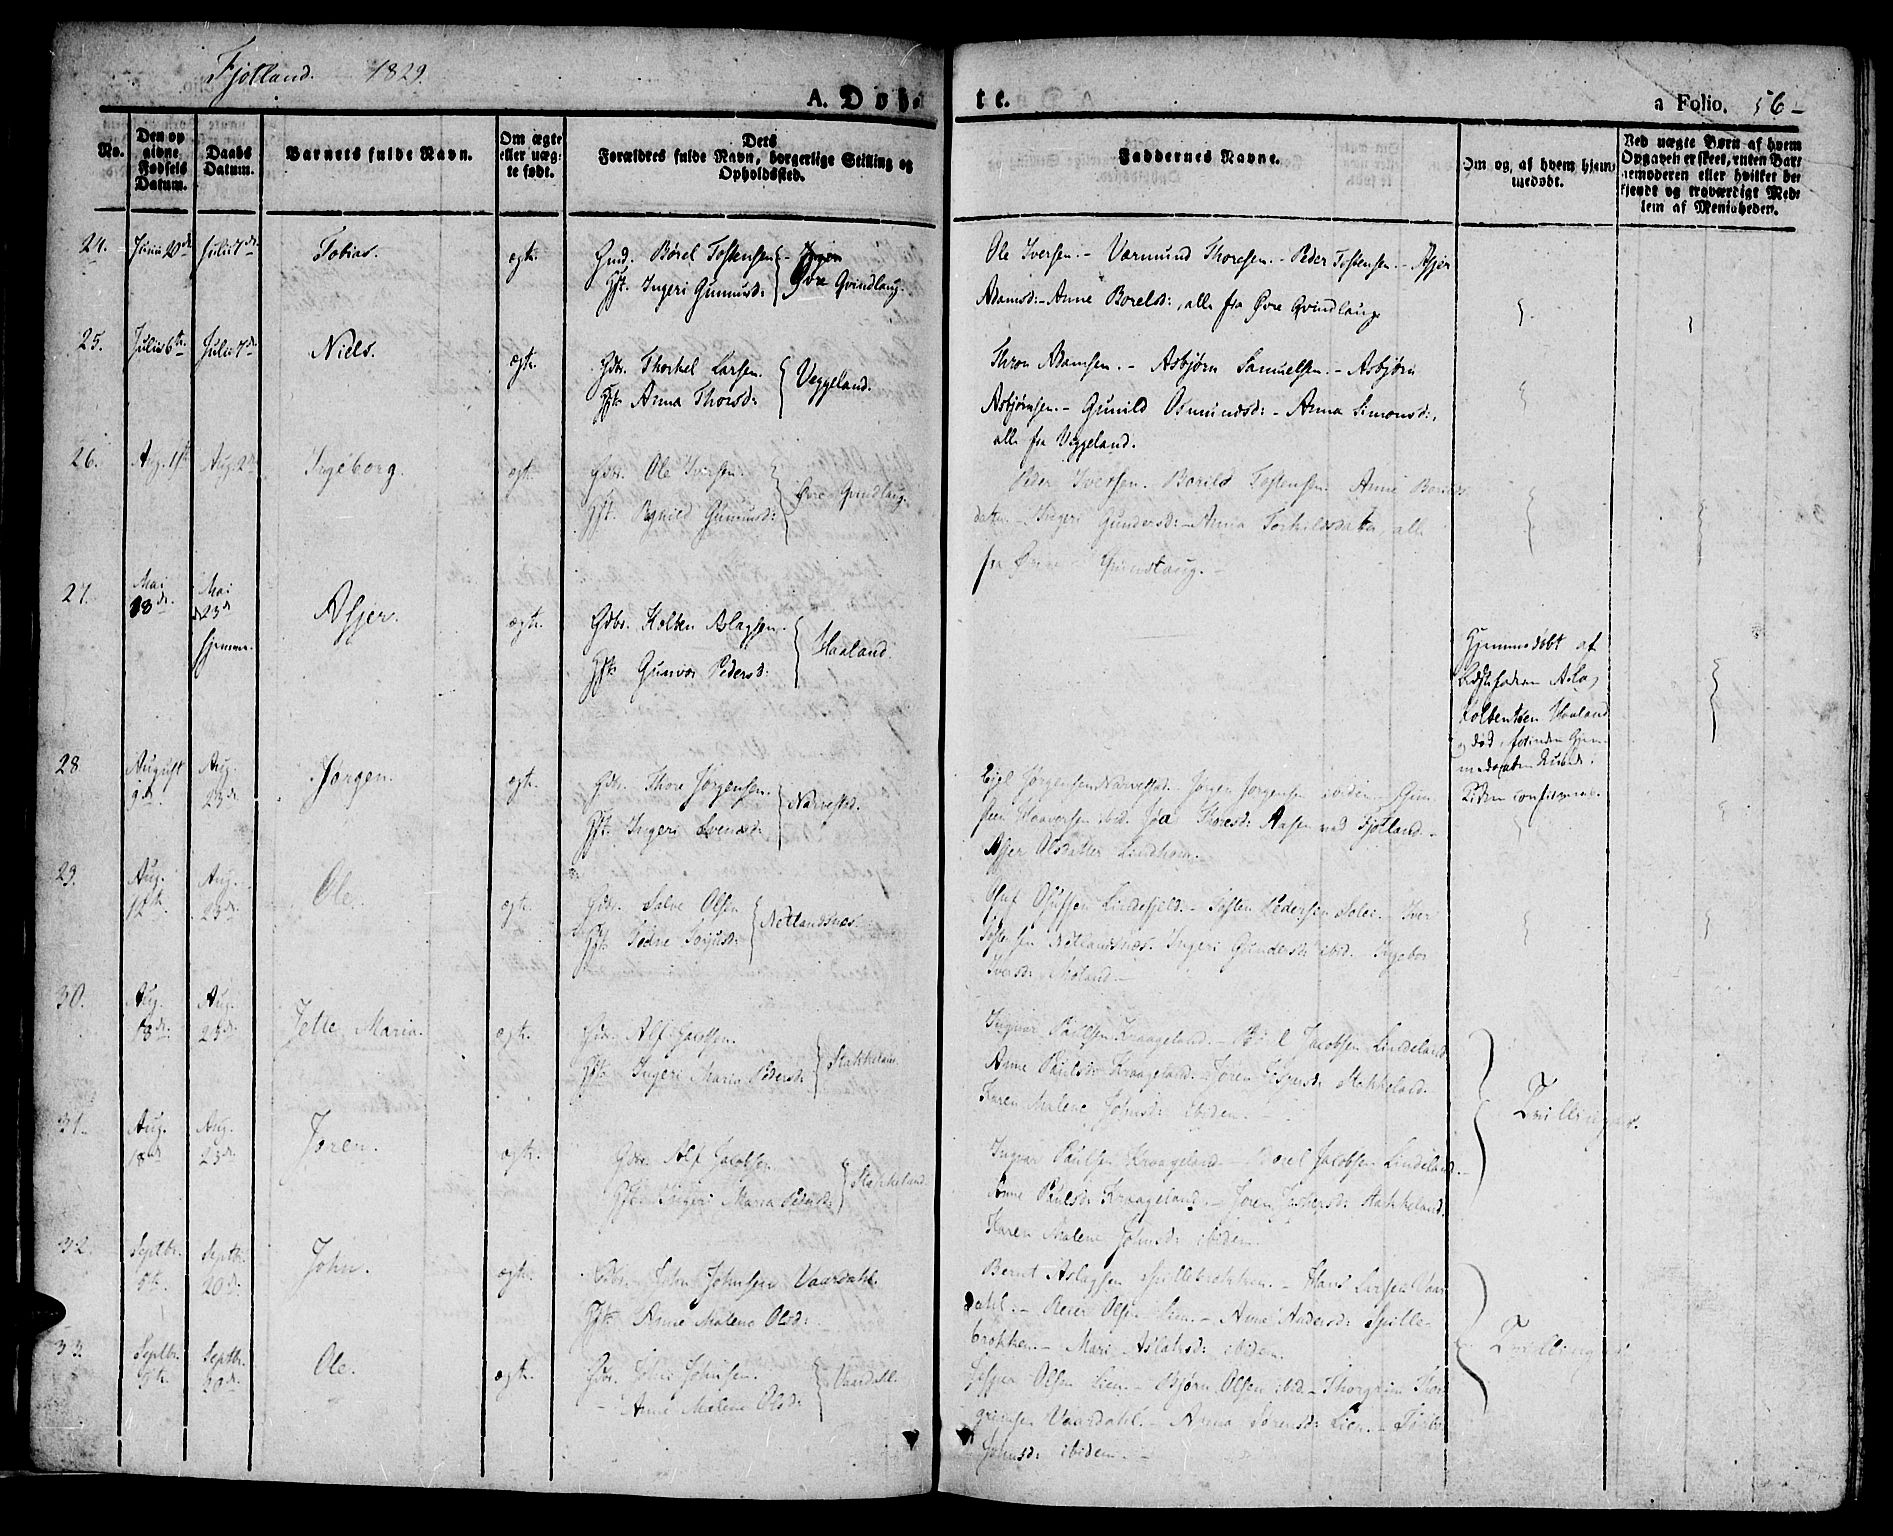 Fjotland. 1829.
A. Døb
te.
a Folio. 56
No.
Den op
givne
Fødsels
Datum.
Daabs
Datum.
Barnets fulde Navn.
Om ægte
eller uæg-
te født.
Dets
Forældres fulde Navn, borgerlige Stilling og
Opholdssted.
Faddernes Navne.
Om og af hvem hjem-
medøbt.
Ved uægte Børn af hvem
Opgaven er skeet, enten Bar-
nemoderen eller hvilket be-
kjendt og troværdigt Med-
lem af Menigheden.
24. Juni 20de Juli 7de Tobias. ægte. Gmd. Børel Tostensen
Hst. Ingeri Gunnusd: Øvre Qvindlaug.
Ole Iversen. – Varmund Thoresen. – Peder Tostensen. – Asjer
Adamsd: – Anne Borelsd:, alle fra Øvre Qvindlaug.
25. Juli 6te Juli 7de Niels. ægte. Gdbr. Thorkel Larsen.
Hst. Anna Thorsd: Veggeland.
Thron Adamsen. – Asbjørn Samuelsen. – Asbjørn
Asbjørnsen. – Gunild Osmundsd: – Anna Simonsd:,
alle fra Veggeland.
26. Aug. 1ste Aug. 2den Ingeborg. ægte. Gdbr. Ole Iversen.
Hst. Gunnusd: Øvre Qvindlaug.
Peder Iversen. Tostensen. Anne Borels
datter. – Ingeri Gundersd: – Anna Torkildsdatter, alle
fra Øvre
27. Mai 18de. Mai 23de hjemme. Asjer. ægte. Gdbr. Kolben Aslagsen.
Hst. Gunvor Pedersd: Haaland.
Hjemmedøbt af
Aslag
Kolbentsen Haaland
og død, forinden
28 August 9de Aug. 23de. Jørgen. ægte. Gdbr. Thore Jørgensen.
Hst. Ingeri Svensd: Narvestad.
Eigl Jørgensen Narvestad. Jørgen Jørgensen ibiden.
Haaversen ibid. Thoresd: Aasen ved Fjotland. –
Asjer Olsdatter
29. Aug. 12te Aug. 23de. Ole. ægte. Gdbr. Salve Olsen
Hst. Netlandsnæs.
Lindefjeld. – Tosten Pedersen – Iver
Tostensen Netlandsnæs. Ingeri Gundersd: ibid. – Ingebor
Iversd:
30. Aug. 18de. Aug. 23de. Jette Maria. ægte. Gdbr. Alf Jacobsen.
Hst. Ingeri Maria Pedersd: Stakkeland
Ingvar Paulsen Kraageland. – Jacobsen Lindeland
Anne Paulsd: Kraageland. – Joren Jespersd: Stakkeland.
Karen Malene Johnsd: ibiden. –
Tvillinger.
31. Aug. 18de Aug. 23de. Joren. ægte. Gdbr. Alf Jacobsen.
Hst. Ingeri Maria Pedersd: Stakkeland
Ingvar Paulsen Kraageland – Borel Jacobsen Lindeland –
Anne Paulsd: Kraageland. – Joren Jespersd: Stakkeland.
Karen Malene Johnsd: ibiden.
32. Septbr. 9de Septbr. 20de. John. ægte. Gdbr. John Johnsen Vaardahl.
Hst. Anne Malene Olsd:
Bernt Aslagsen Spillebrokken. – Hans Larsen Vaar
dahl. – Reier Olsen Lien. – Anne Andersd: Spille
brokken. – Mari Aslaksd: ibiden.
Tvillinger
33. Septbr. 9de. Septbr. 20de. Ole. ægte. Gdbr. John Johnsen.
Anne Malene Olsd: Vaardahl.
Jesper Olsen Lien. – Bjørn Olsen ibid. – Thorgrim Thor
grimsen Vaardahl. – Anna Sørensd: Lien. –
Johnsd: ibiden. –